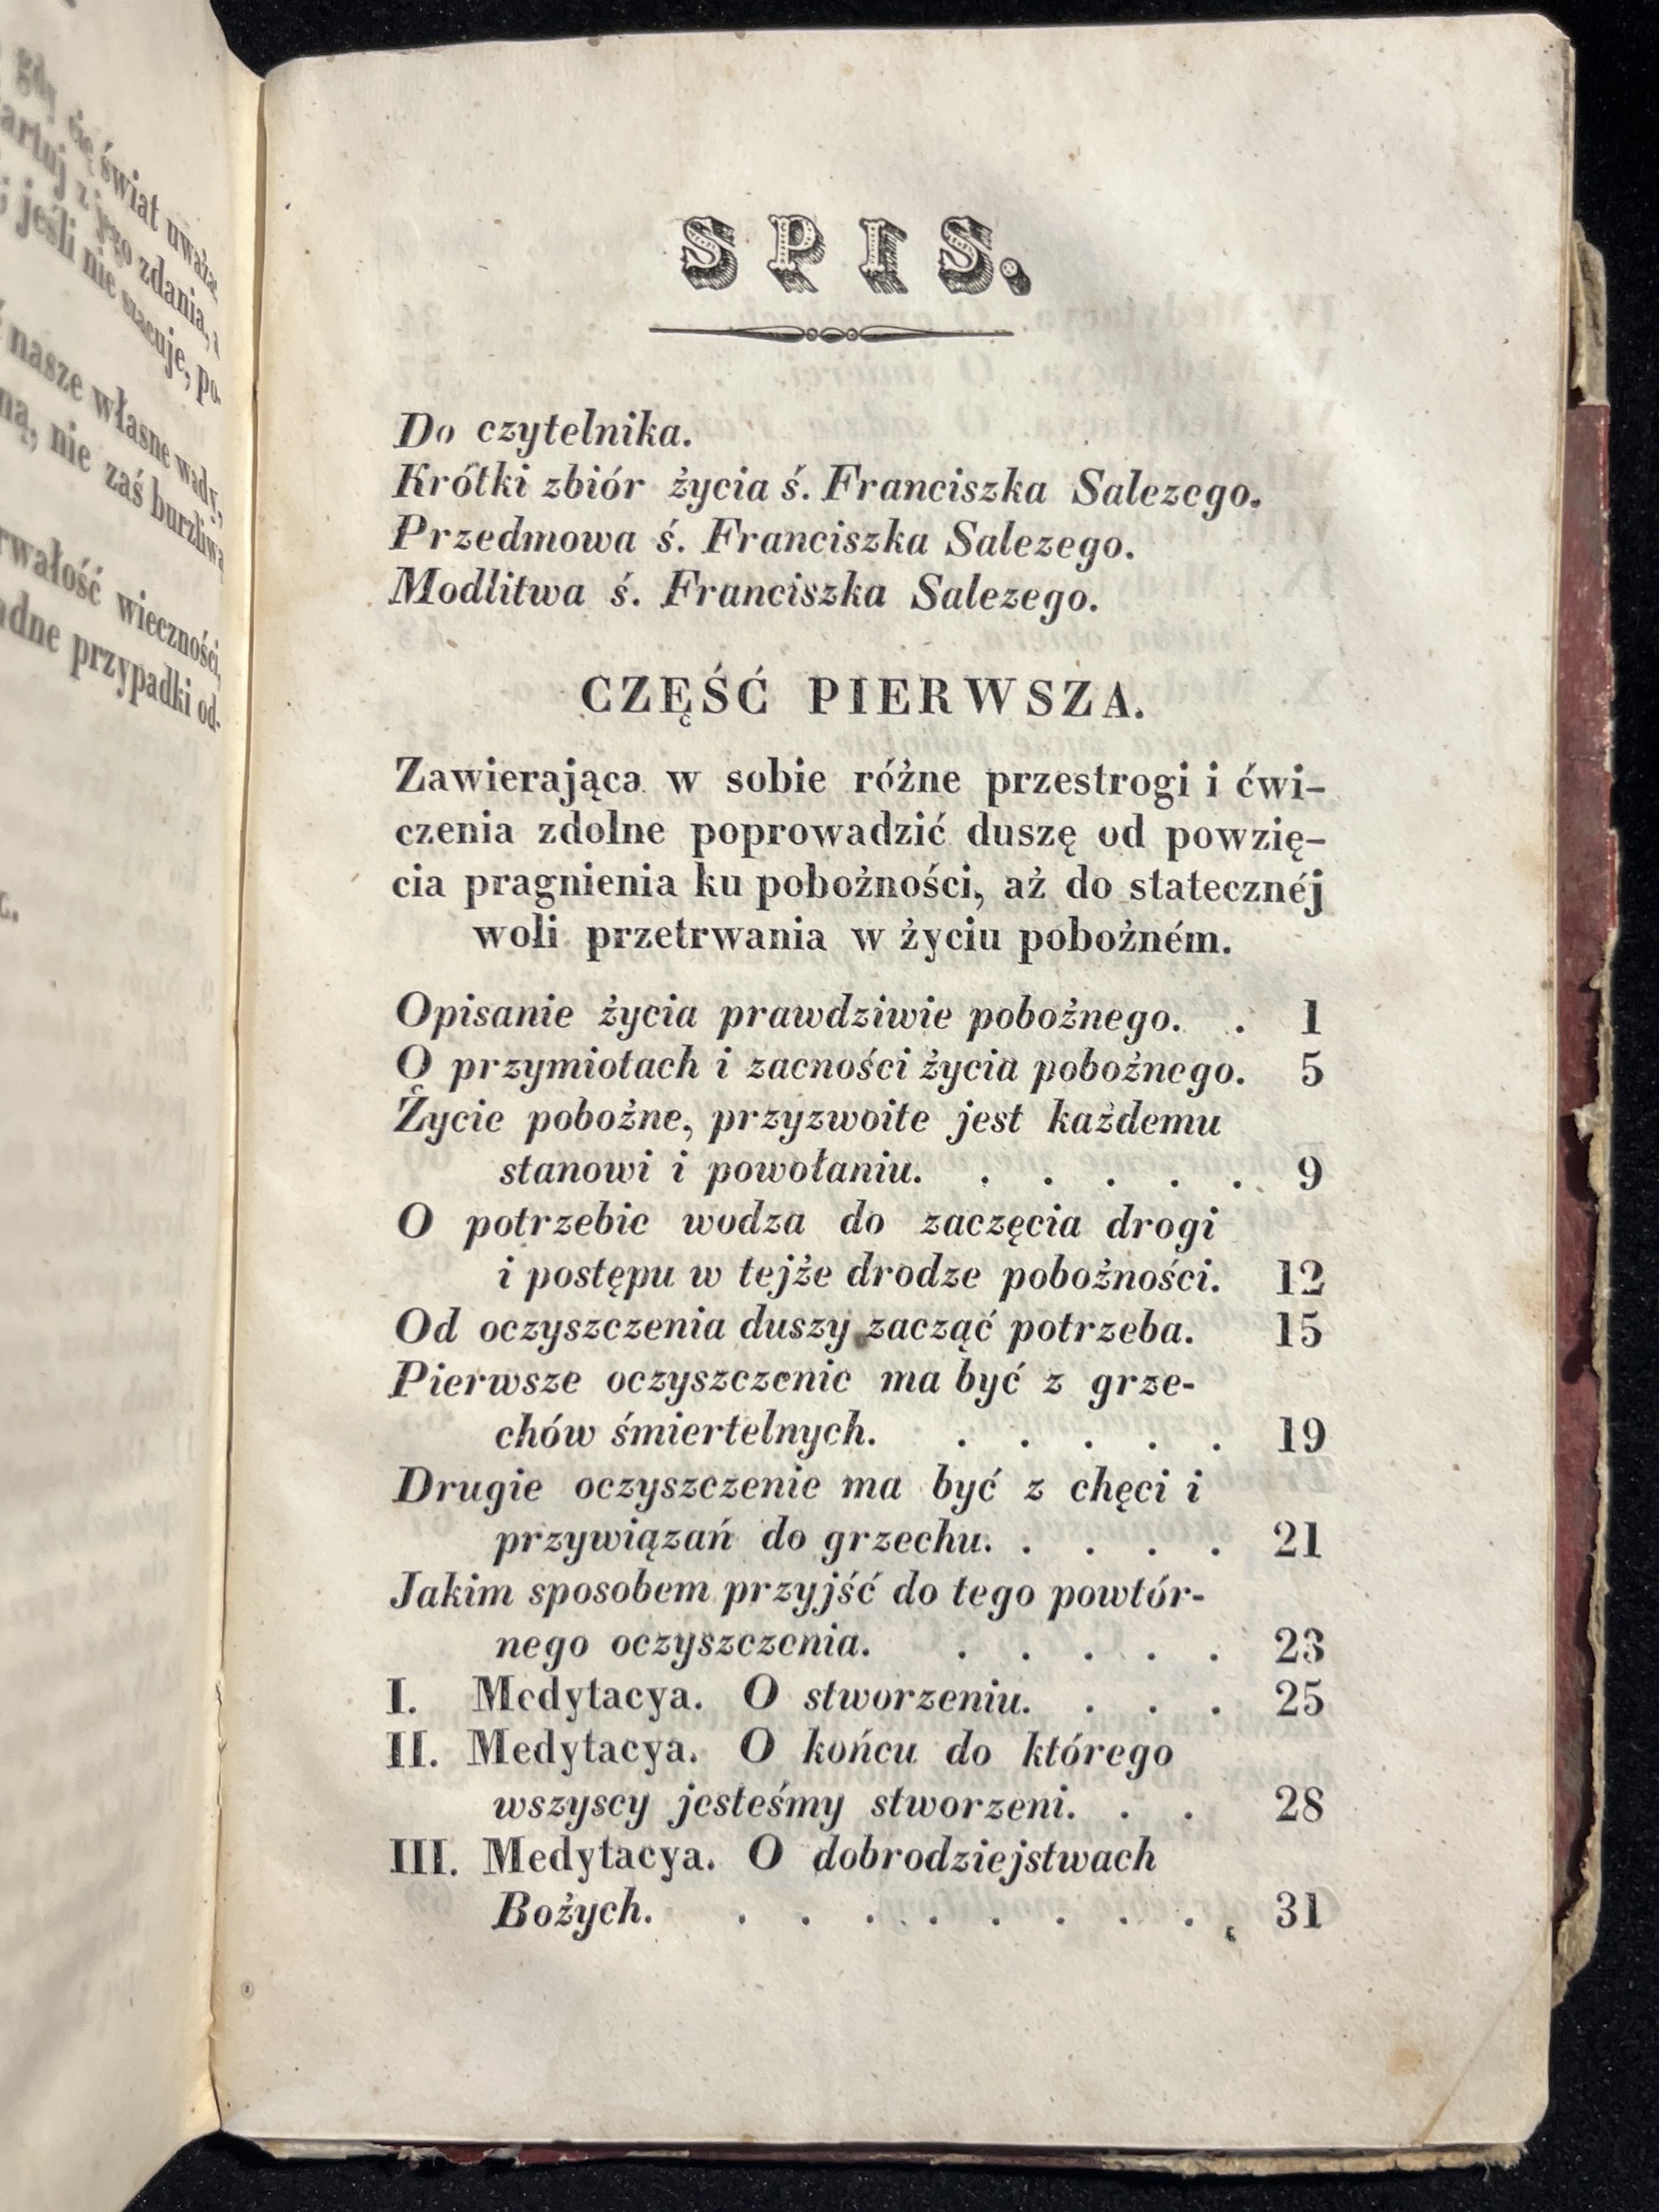 gdy cię świat uważa
z jego zdania,
jeśli nie szacuje, po-
nasze własne wady,
nie zaś burzliwą
wieczności,
przypadki od-
SPIS.
Do czytelnika.
Krótki zbiór życia ś. Franciszka Salezego.
Przedmowa ś. Franciszka Salezego.
Modlitwa ś. Franciszka Salezego.
CZĘŚĆ PIERWSZA.
Zawierająca w sobie różne przestrogi i ćwi-
czenia zdolne poprowadzić duszę od powzię-
cia pragnienia ku pobożności, aż do statecznéj
woli przetrwania w życiu pobożném.
Opisanie życia prawdziwie pobożnego. . 1
O przymiotach i zacności życia pobożnego. 5
Życie pobożne, przyzwoite jest każdemu
stanowi i powołaniu. . . . . . 9
O potrzebie wodza do zaczęcia drogi
i postępu w tejże drodze pobożności. 12
Od oczyszczenia duszy zacząć potrzeba. 15
Pierwsze oczyszczenie ma być z grze-
chów śmiertelnych. . . . . . 19
Drugie oczyszczenie ma być z chęci i
przywiązań do grzechu. . . . . 21
Jakim sposobem przyjść do tego powtór-
nego oczyszczenia. . . . . . 23
I. Medytacya. O stworzeniu. . . . 25
II. Medytacya. O końcu do którego
wszyscy jesteśmy stworzeni. . . 28
III. Medytacya. O dobrodziejstwach
Bożych. . . . . . . . . 31